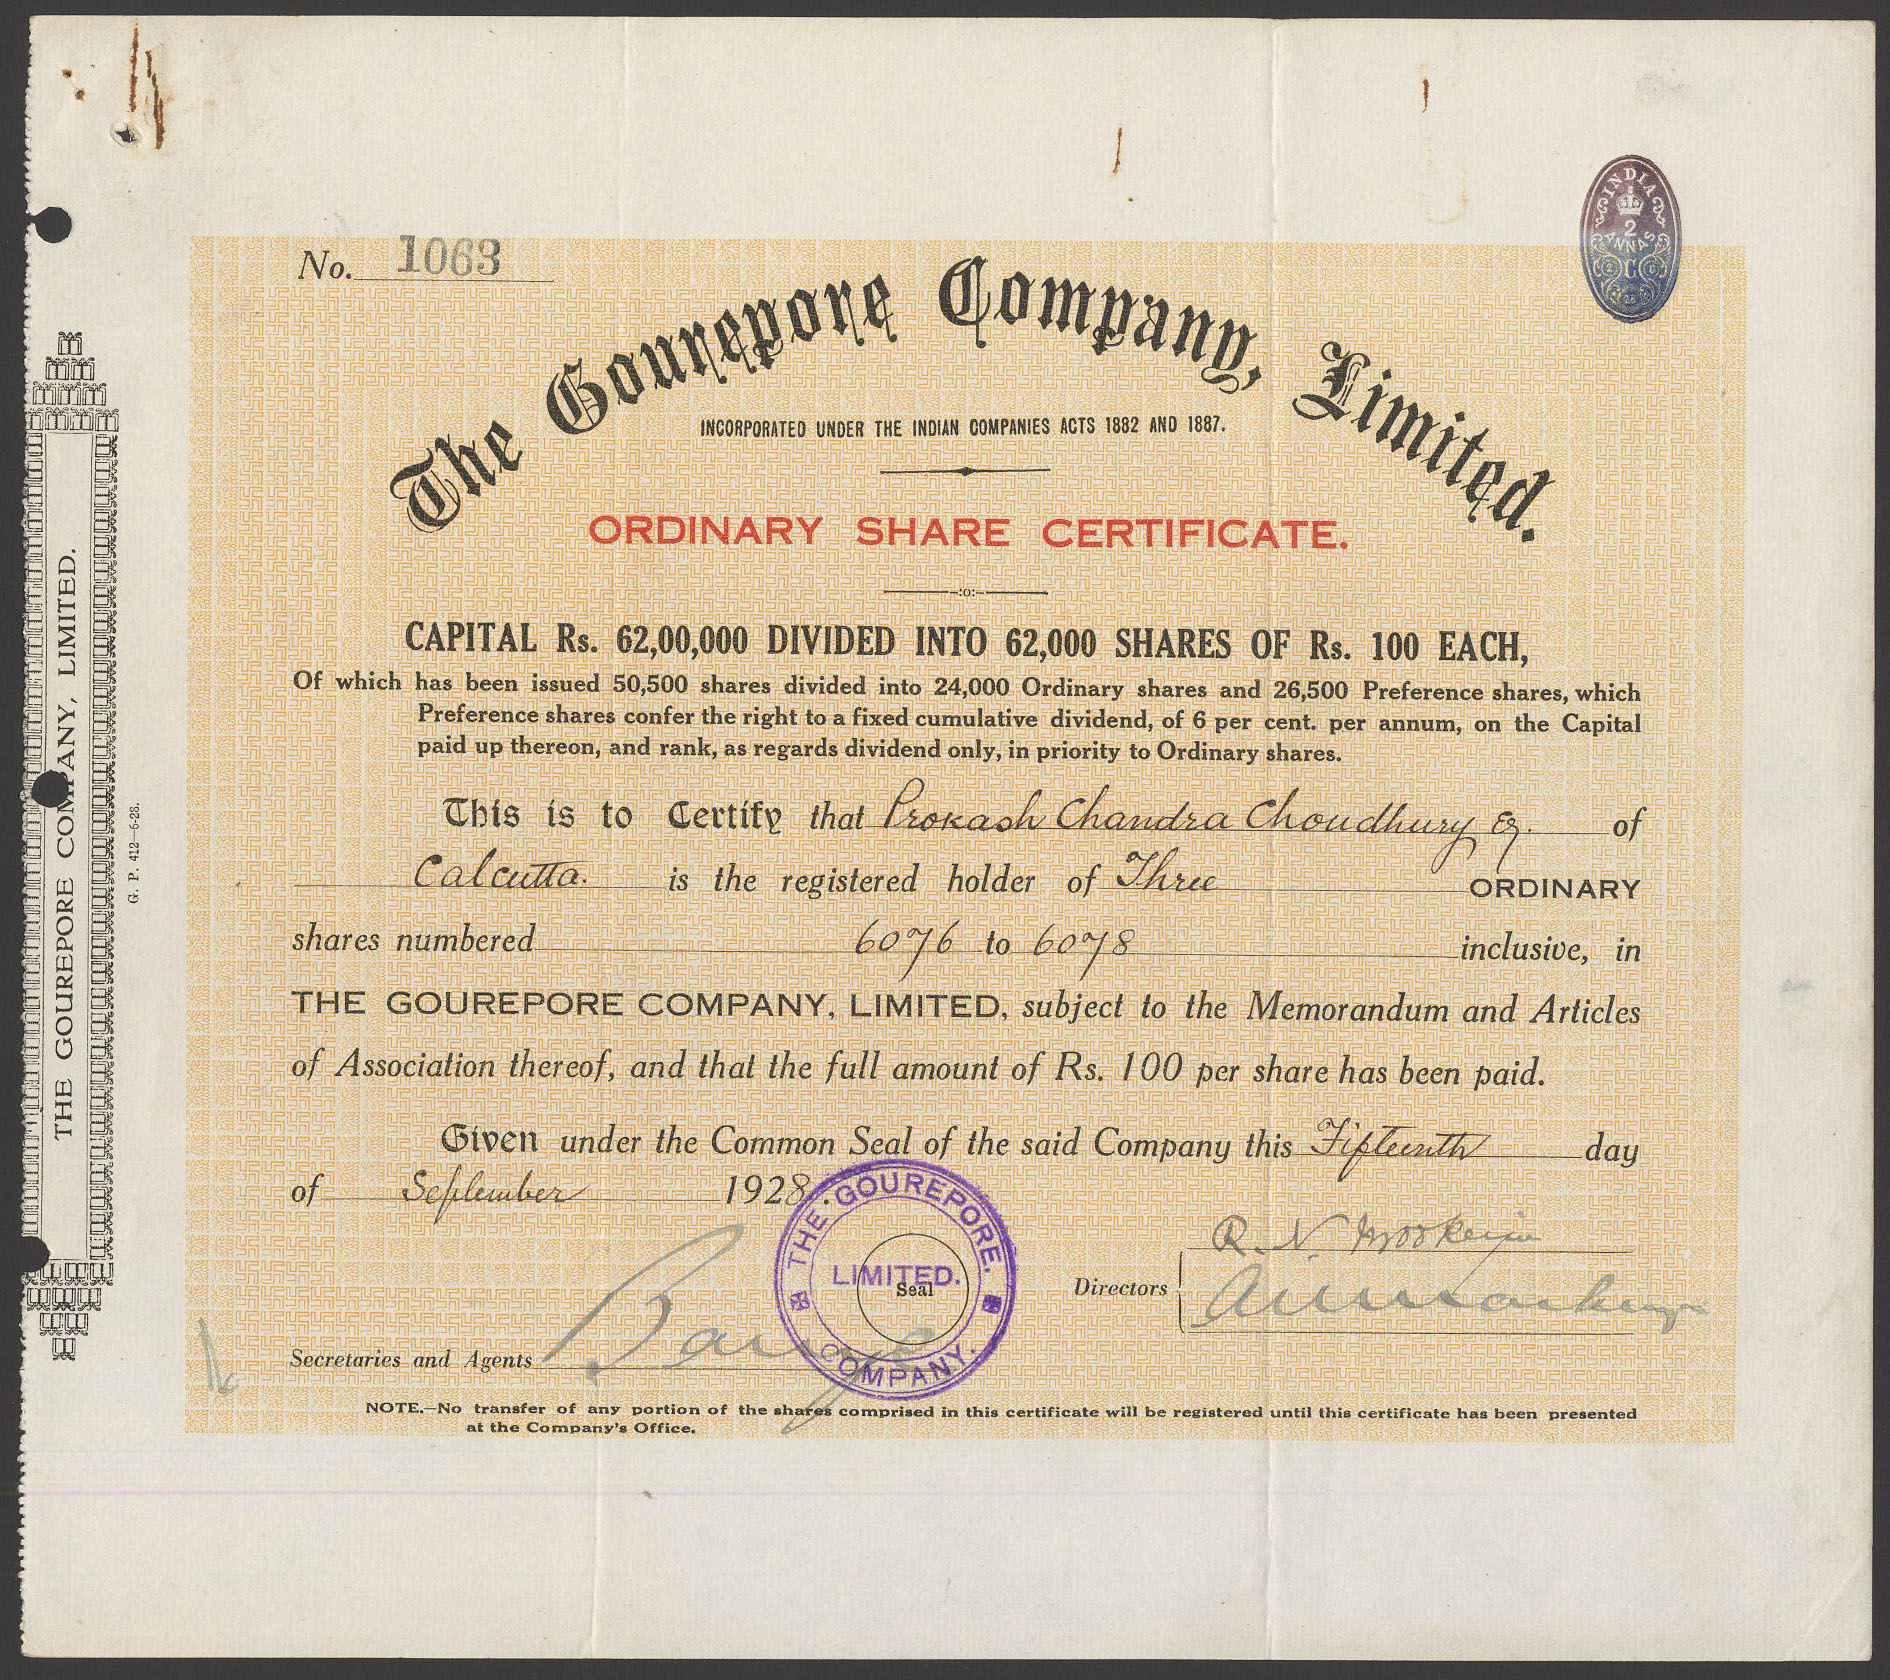 INDIA
2
ANNAS
No. 1063
The Gourepore Company, Limited.
INCORPORATED UNDER THE INDIAN COMPANIES ACTS 1882 AND 1887.
ORDINARY SHARE CERTIFICATE.
—:o:—
CAPITAL Rs. 62,00,000 DIVIDED INTO 62,000 SHARES OF Rs. 100 EACH,
Of which has been issued 50,500 shares divided into 24,000 Ordinary shares and 26,500 Preference shares, which
Preference shares confer the right to a fixed cumulative dividend, of 6 per cent. per annum, on the Capital
paid up thereon, and rank, as regards dividend only, in priority to Ordinary shares.
This is to Certify that Prokash Chandra Choudhury Eq. of
Calcutta. is the registered holder of Three ORDINARY
shares numbered 6076 to 6078 inclusive, in
THE GOUREPORE COMPANY, LIMITED, subject to the Memorandum and Articles
of Association thereof, and that the full amount of Rs. 100 per share has been paid.
Given under the Common Seal of the said Company this Fifteenth day
of September 1928.
THE GOUREPORE.
LIMITED.
Seal
COMPANY.
R. N. Mookerjee
Directors
Secretaries and Agents
NOTE.—No transfer of any portion of the shares comprised in this certificate will be registered until this certificate has been presented
at the Company's Office.
THE GOUREPORE COMPANY, LIMITED.
G. P. 412—6-28.